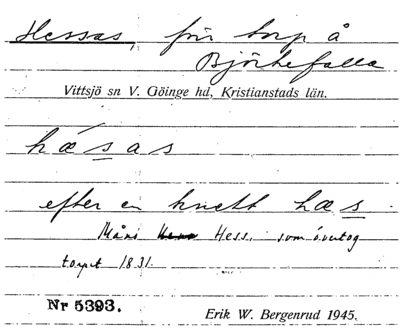 Hessas, förr torp å
Björkefalla
Vittsjö sn V. Göinge hd, Kristianstads län.
hæsas
efter en knekt hæs
Måns Hess. som övertog
torpet 1831.
Nr 5393.
Erik W. Bergenrud 1945.